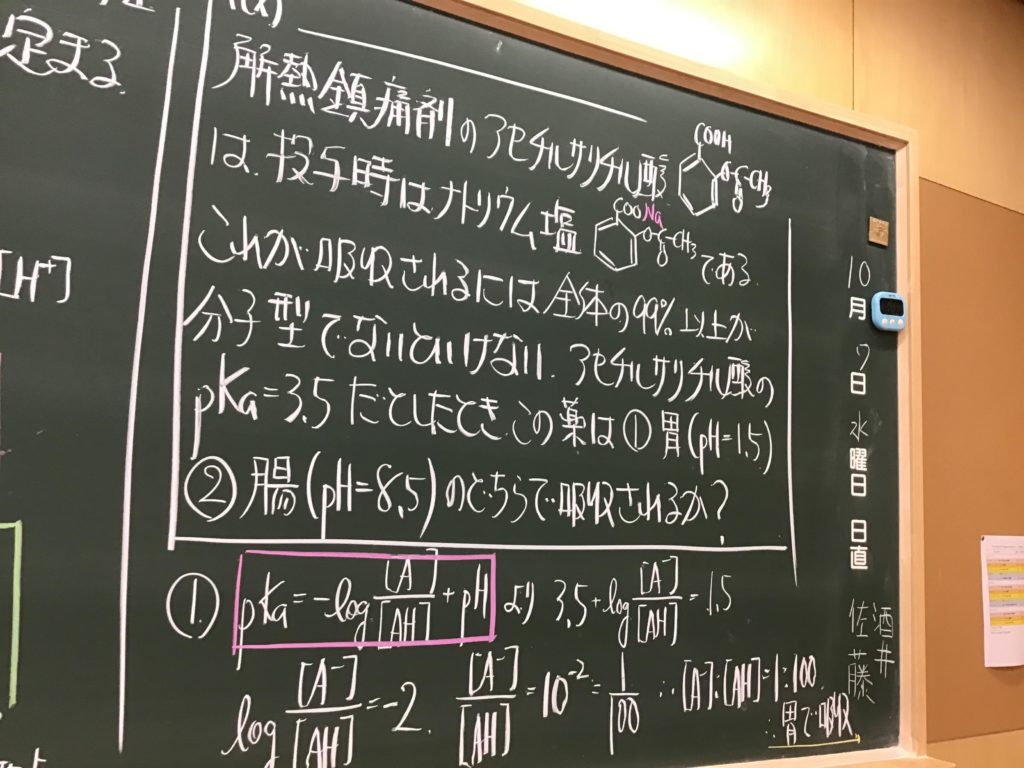 定まる
[H⁺]
解熱鎮痛剤のアセチルサリチル酸 COOH O-C-CH₃ O
は、投与時はナトリウム塩 COONa O-C-CH₃ O である.
これが吸収されるには全体の99%以上が
分子型でないといけない. アセチルサリチル酸の
pKa=3.5 だとしたとき、この薬は ① 胃(pH=1.5)
② 腸(pH=8.5)のどちらで吸収されるか?
①. pKa=-log [A⁻]/[AH] +pH より 3.5+log [A⁻]/[AH] =1.5
log [A⁻]/[AH] =-2. [A⁻]/[AH] =10⁻²= 1/100 ∴[A⁻]:[AH]=1:100
∴胃で吸収
10月7日水曜日 日直
酒井
佐藤